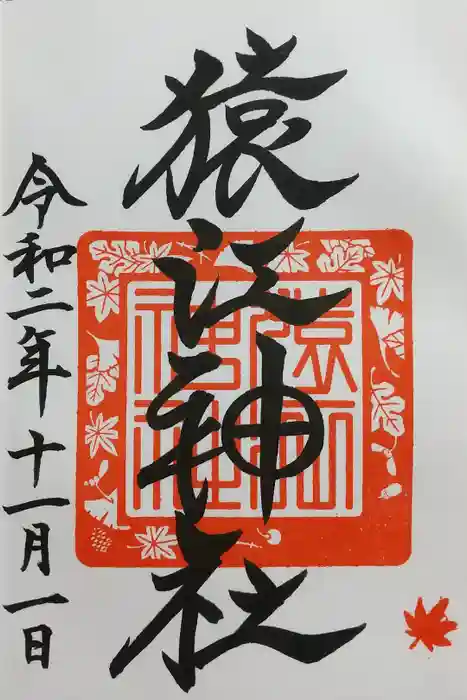 猿江神社
令和二年十一月一日
猿江
神社